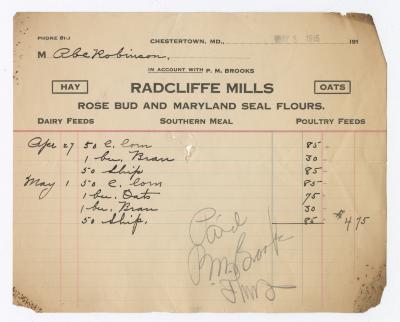 PHONE 81-J
CHESTERTOWN, MD., MAY 5 1915 191
M Abe Robinson,
IN ACCOUNT WITH P. M. BROOKS
HAY RADCLIFFE MILLS OATS
ROSE BUD AND MARYLAND SEAL FLOURS.
DAIRY FEEDS SOUTHERN MEAL POULTRY FEEDS
Apr 27 50 C. Corn 85
1 bu. Bran 30
50 Ship 85
May 1 50 C. Corn 85
1 bu. Oats 75
1 bu. Bran 30
50 Ship. 85 $4 75
Paid
P.M. Brooks